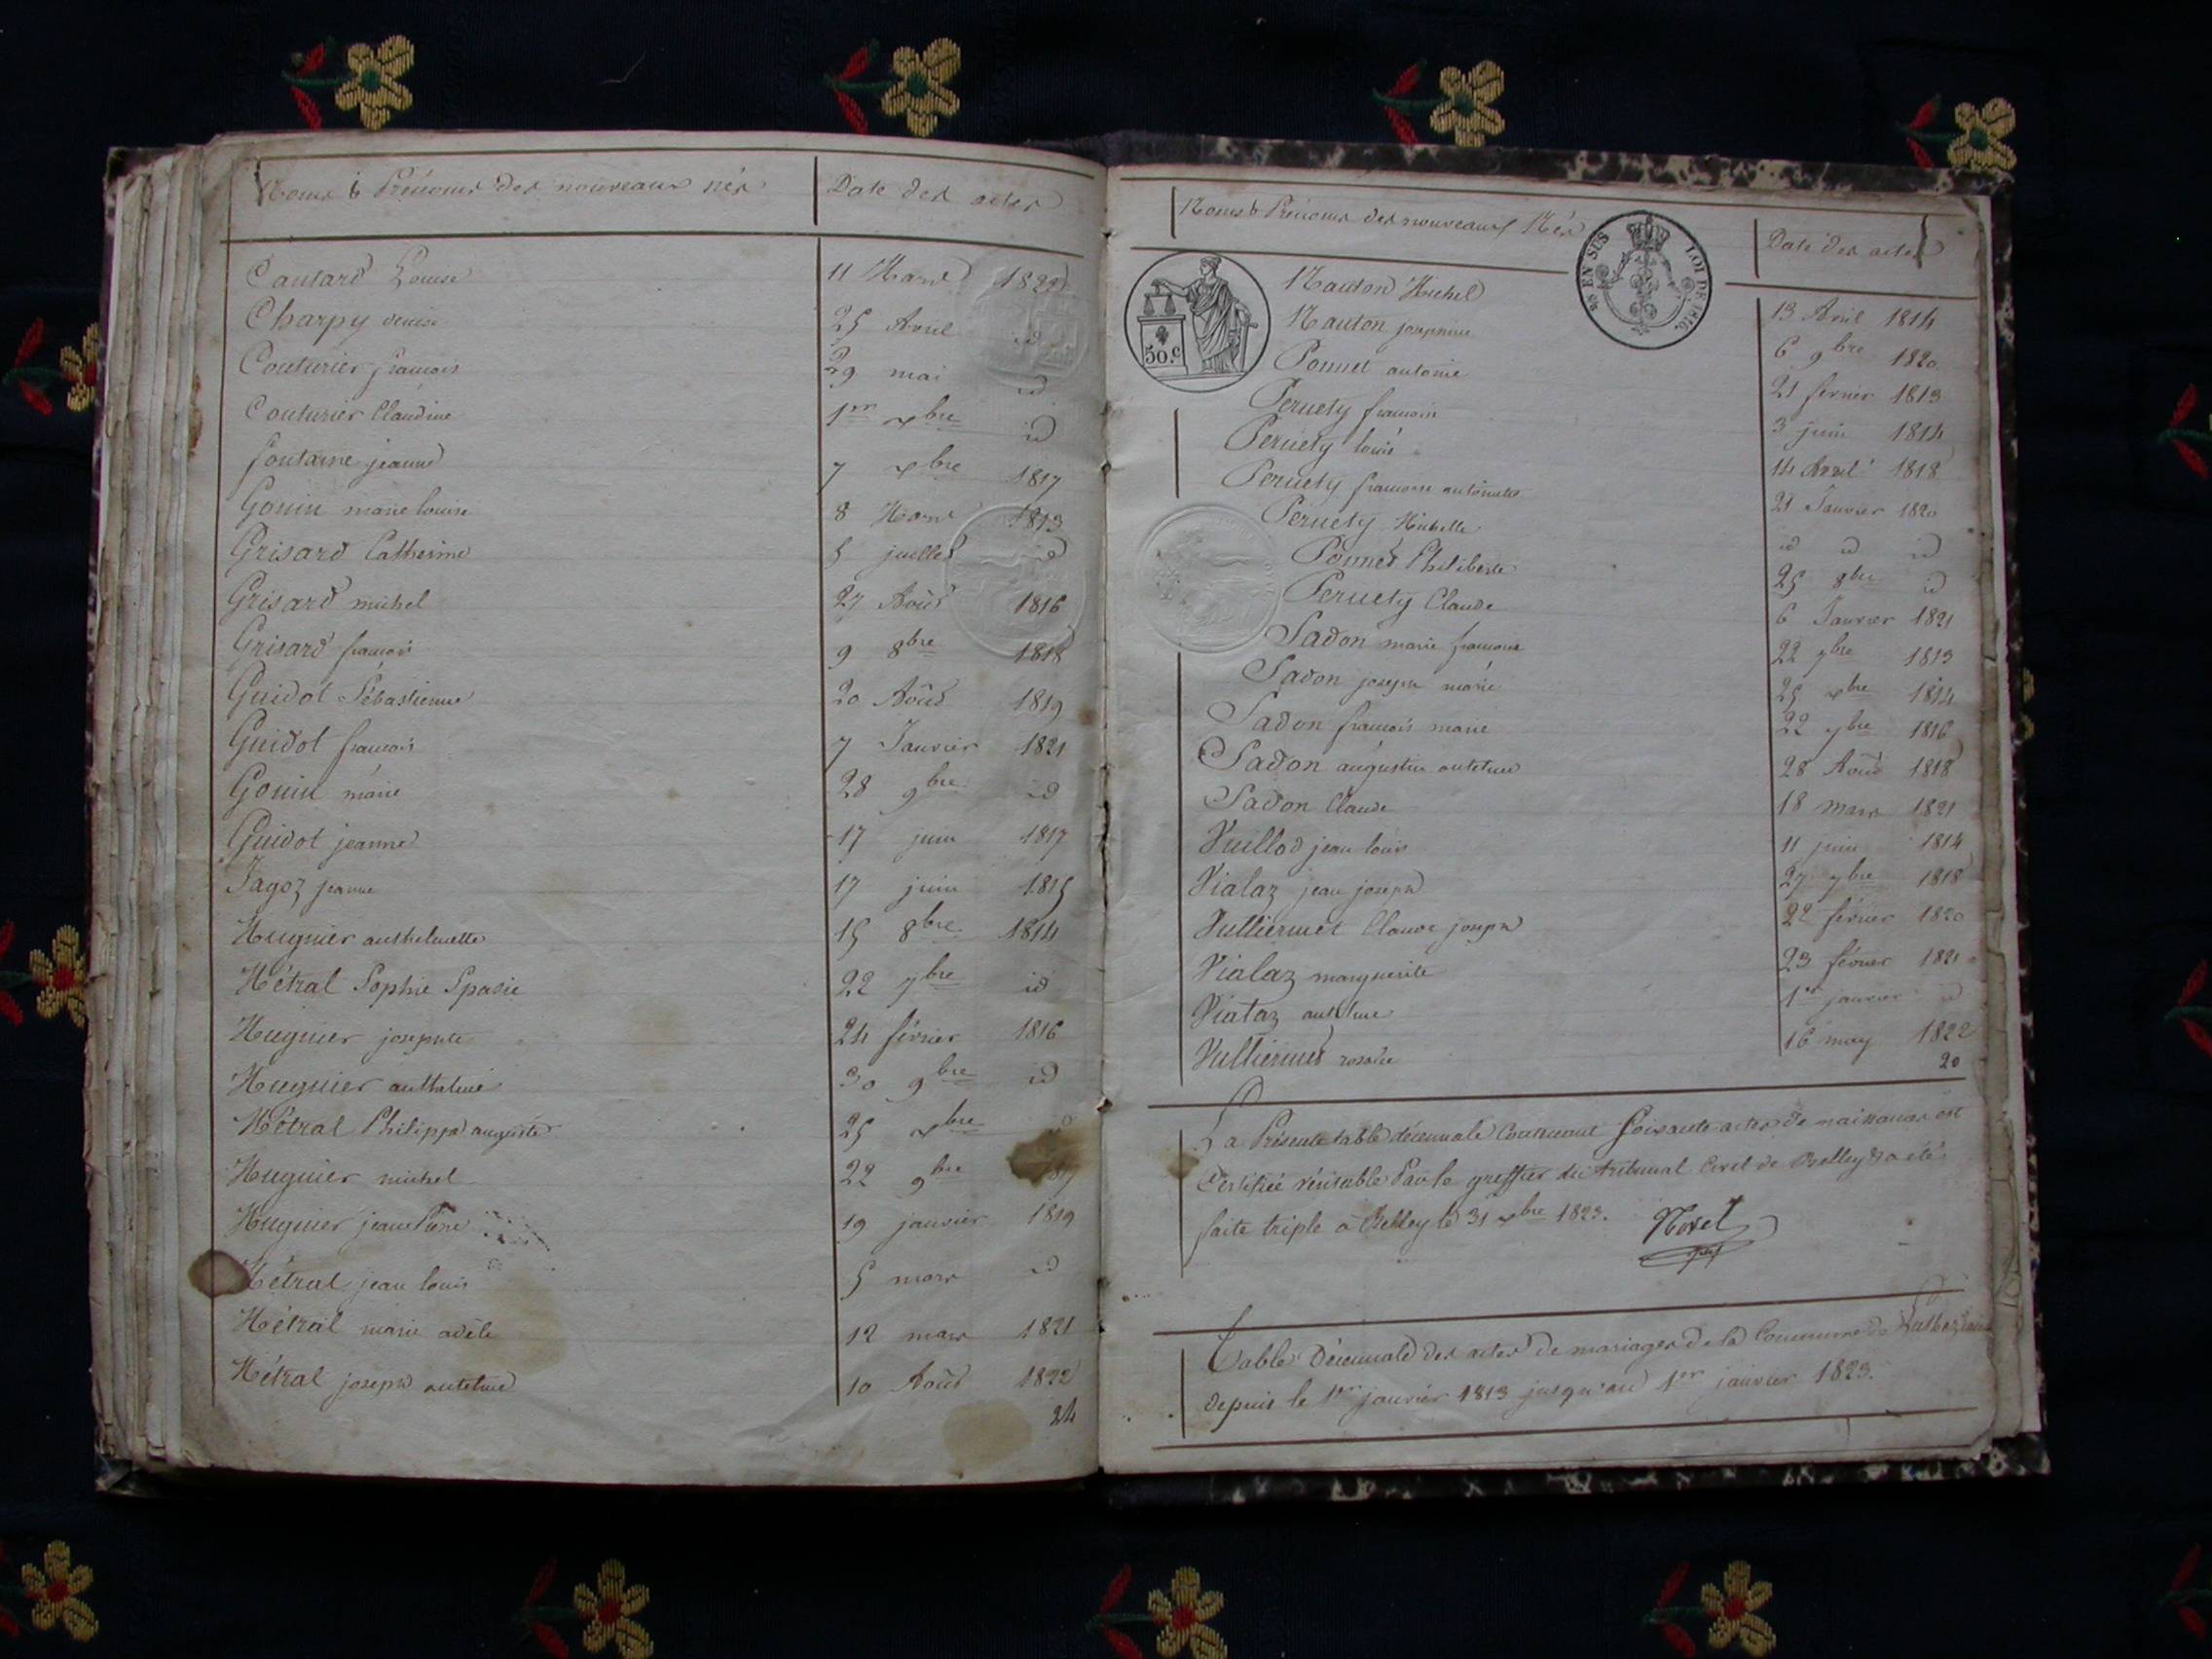 Noms & Prénoms des nouveaux nés
Date des actes
Cantard Louise 11 Mars 1822
Charpy denise 25 Avril id
Couturier francois 29 mai id
Couturier Claudine 1er xbre id
fontaine jeanne 7 xbre 1817
Gouin marie louise 8 Mars 1813
Grisard Catherine 5 juillet id
Grisard michel 27 Août 1816
Grisard francois 9 8bre 1818
Guidot Sébastienne 20 Août 1819
Guidot francois 7 Janvier 1821
Gouin marie 28 9bre id
Guidot jeanne 17 juin 1817
Jagoz jeanne 17 juin 1815
Hugnier anthelmette 15 8bre 1814
Métral Sophie Spasie 22 7bre id
Hugnier josephte 24 février 1816
Hugnier anthelme 30 9bre id
Métral Philippe auguste 25 xbre
Hugnier michel 22 9bre
Hugnier jean Pierre 19 janvier 1819
Métral jean louis 5 mars id
Métral marie adèle 12 mars 1821
Métral joseph antelme 10 Août 1822
24
Noms & Prénoms des nouveaux Nés
Date des actes
EN SUS LOI DE 1816.
50.c
Nauton Michel 13 Avril 1814
Nauton josephine 6 9bre 1820
Ponnet antoine 21 fevrier 1813
Peruety francois 3 juin 1814
Peruety louis 14 Avril 1818
Peruety francoise 21 Janvier 1820
Peruety Michelle id id id
Ponnet Philiberte 25 8bre id
Peruety Claude 6 Janvier 1821
Sadon marie francoise 22 7bre 1813
Sadon joseph marie 25 xbre 1814
Sadon francois marie 22 7bre 1816
Sadon augustin antelme 28 Août 1818
Sadon Claude 18 mars 1821
Vuillod jean louis 11 juin 1814
Vialaz jean joseph 27 7bre 1818
Vulliermet Claude joseph 22 février 1820
Vialaz marguerite 23 février 1821
Vialaz anthelme 1er janvier id
Vulliermet rosalie 16 may 1822
20
La Présente table décennale Contenant Soixante actes de naissances est
Certifiée véritable Par le greffier du tribunal Civil de Belley & a été
faite triple a Belley le 31 xbre 1823.
Table Décennale des actes de mariages de la Commune de
depuis le 1er janvier 1813 jusqu'au 1er janvier 1823.